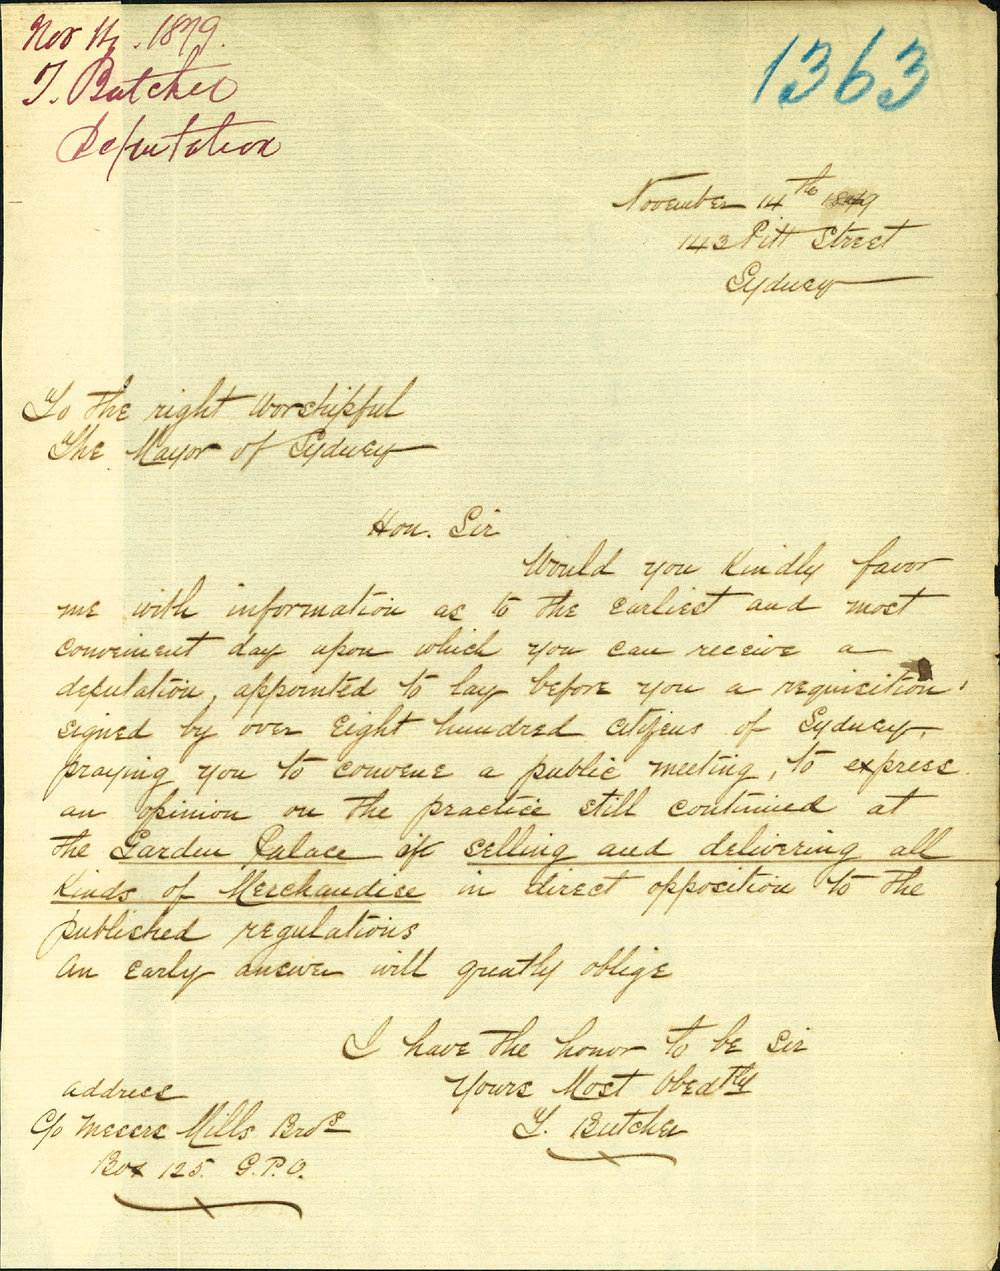 Nov 14. 1879.
T. Butcher
Deputation
1363
November 14th 1879
143 Pitt Street
Sydney
To the right Worshipful
The Mayor of Sydney
Hon. Sir
Would you kindly favor
me with information as to the earliest and most
conveinent day upon which you can receive a
deputation, appointed to lay before you a requisition
signed by over eight hundred citizens of Sydney,
praying you to convene a public meeting, to express
an opinion on the practice still continued at
the Garden Palace of selling and delivering all
kinds of Merchandise in direct opposition to the
published regulations
An early answer will greatly oblige
I have the honor to be Sir
Yours Most Obedtly
T. Butcher
address
C/o Messrs Mills Bros
Box 125. G.P.O.